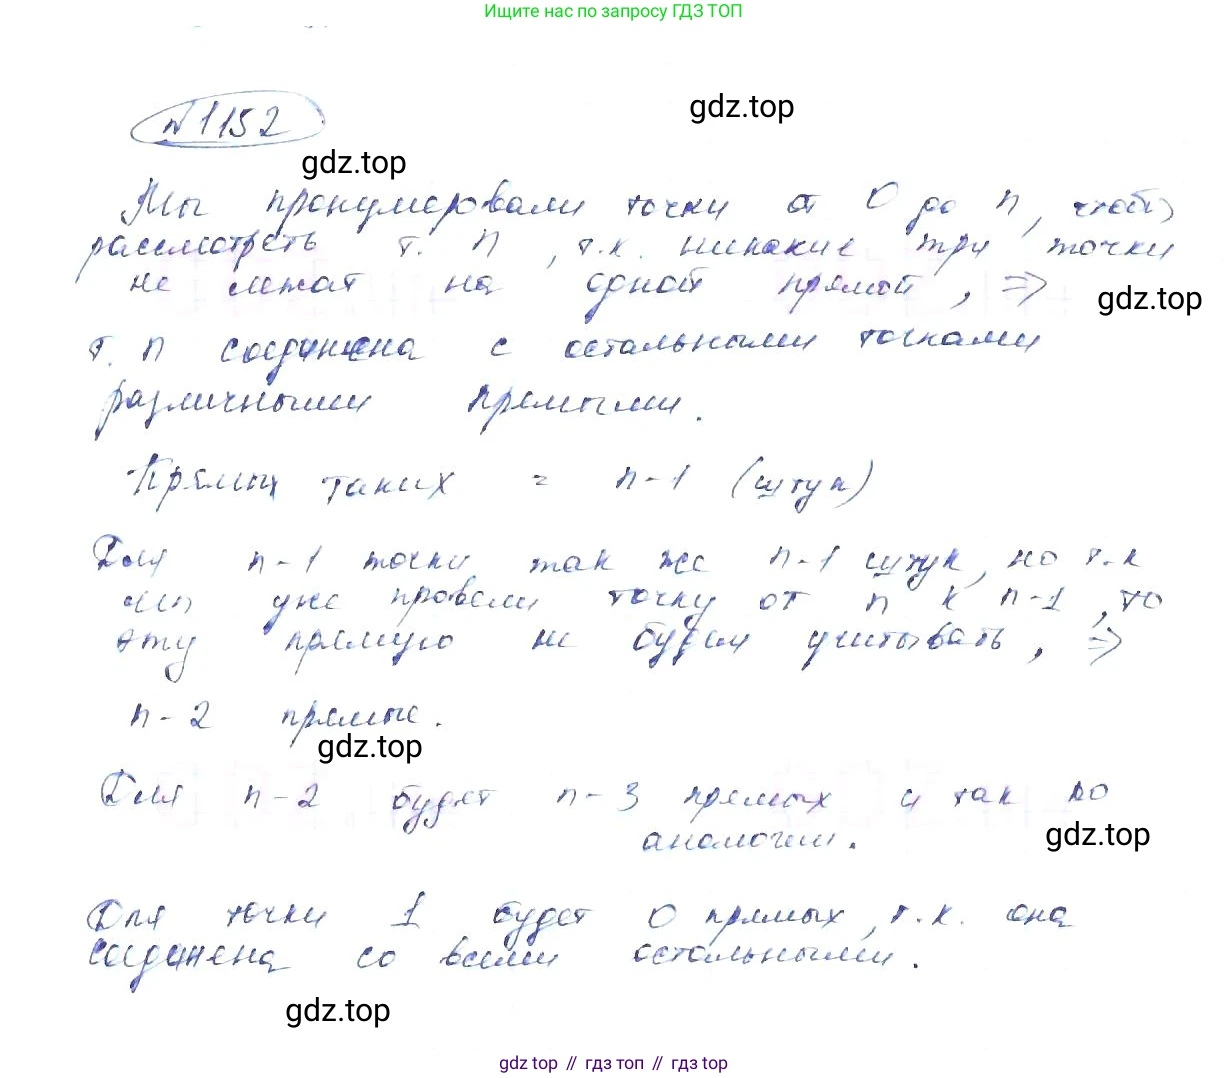 Ищите нас по запросу ГДЗ ТОП
№1152
gdz.top
gdz.top
Мы пронумеровали точки от 0 до n, чтобы
рассмотреть т. n, т.к. никакие три точки
не лежат на одной прямой, =>
gdz.top
т. n соединена с остальными точками
различными прямыми.
Прямых таких = n-1 (штук)
Для n-1 точки так же n-1 штук, но т.к
мы уже провели точку от n к n-1, то
эту прямую не будем учитывать, =>
n-2 прямые.
gdz.top
Для n-2 будет n-3 прямых и так по
аналогии.
gdz.top
Для точки 1 будет 0 прямых, т.к. она
соединена со всеми остальными.
gdz.top
gdz top // гдз топ // гдз top